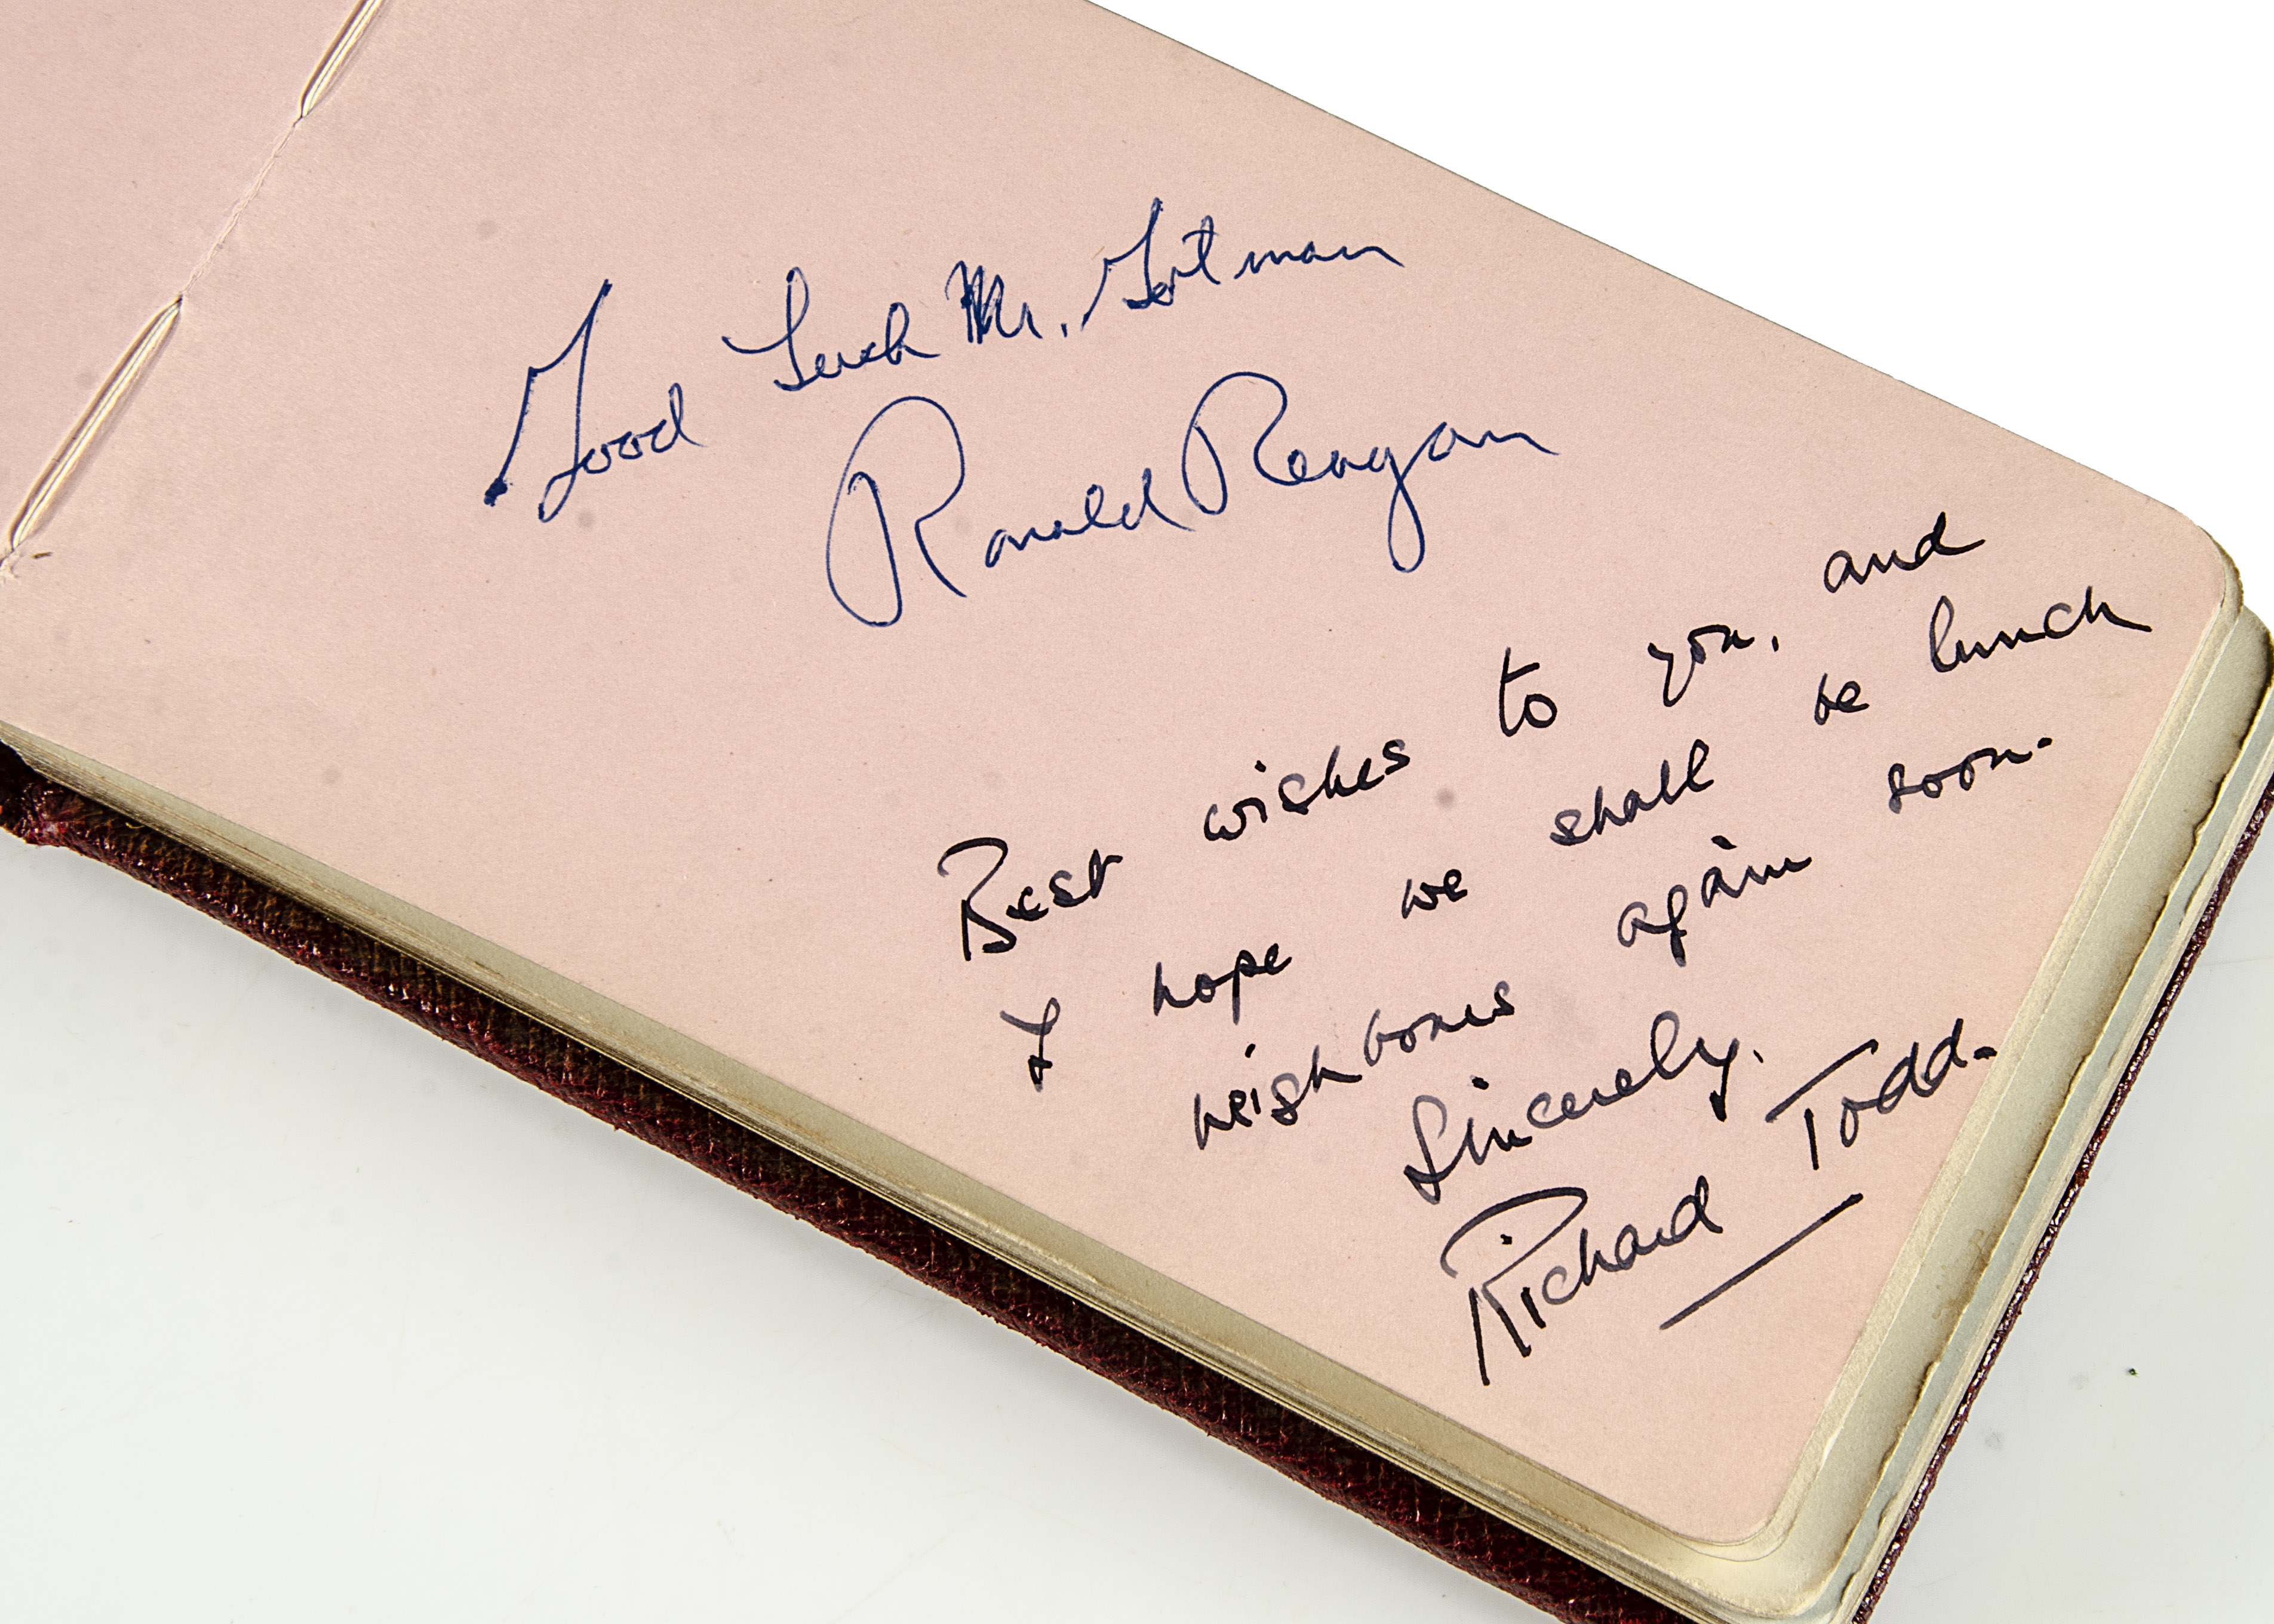 Good Luck Mr. Gotman
Ronald Reagan
Best wishes to you, and
I hope we shall be lunch
neighbours again soon.
Sincerely,
Richard Todd.